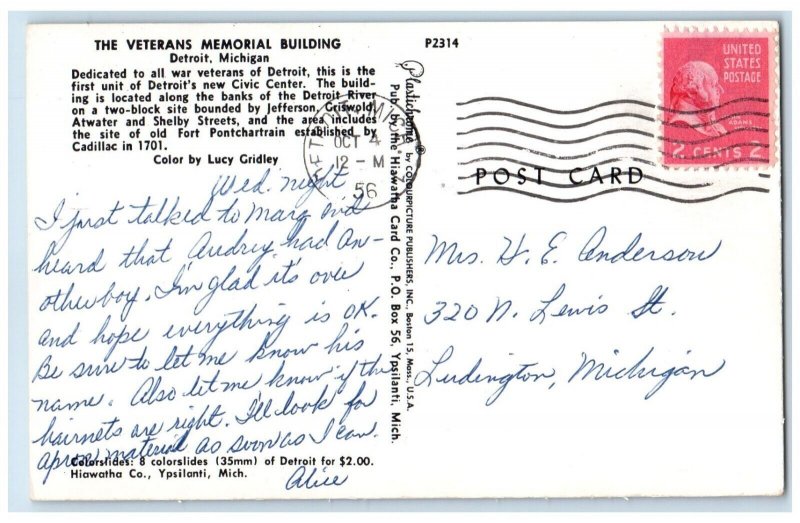 THE VETERANS MEMORIAL BUILDING
Detroit, Michigan
Dedicated to all war veterans of Detroit, this is the
first unit of Detroit's new Civic Center. The build-
ing is located along the banks of the Detroit River
on a two-block site bounded by Jefferson, Griswold,
Atwater and Shelby Streets, and the area includes
the site of old Fort Pontchartrain established by
Cadillac in 1701.
Color by Lucy Gridley
Wed. night
I just talked to Marg and
heard that Audrey had an-
other boy. I'm glad it's over
and hope everything is OK.
Be sure to let me know his
name. Also let me know if the
hairnets are right. I'll look for
apron material as soon as I can.
Alice
Colorslides: 8 colorslides (35mm) of Detroit for $2.00.
Hiawatha Co., Ypsilanti, Mich.
P2314
Plastichrome® by COLOURPICTURE PUBLISHERS, INC., Boston 15, Mass., U.S.A.
Pub. by the Hiawatha Card Co., P.O. Box 56, Ypsilanti, Mich.
OCT 4
12 – M
56
UNITED
STATES
POSTAGE
ADAMS
2 CENTS 2
POST CARD
Mrs. H. E. Anderson
320 N. Lewis St.
Ludington, Michigan